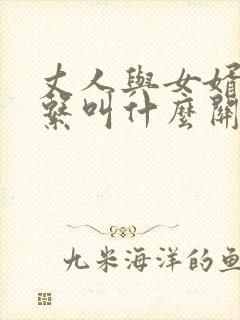 丈人與女婿
繫叫什麼關
九米海洋的魚